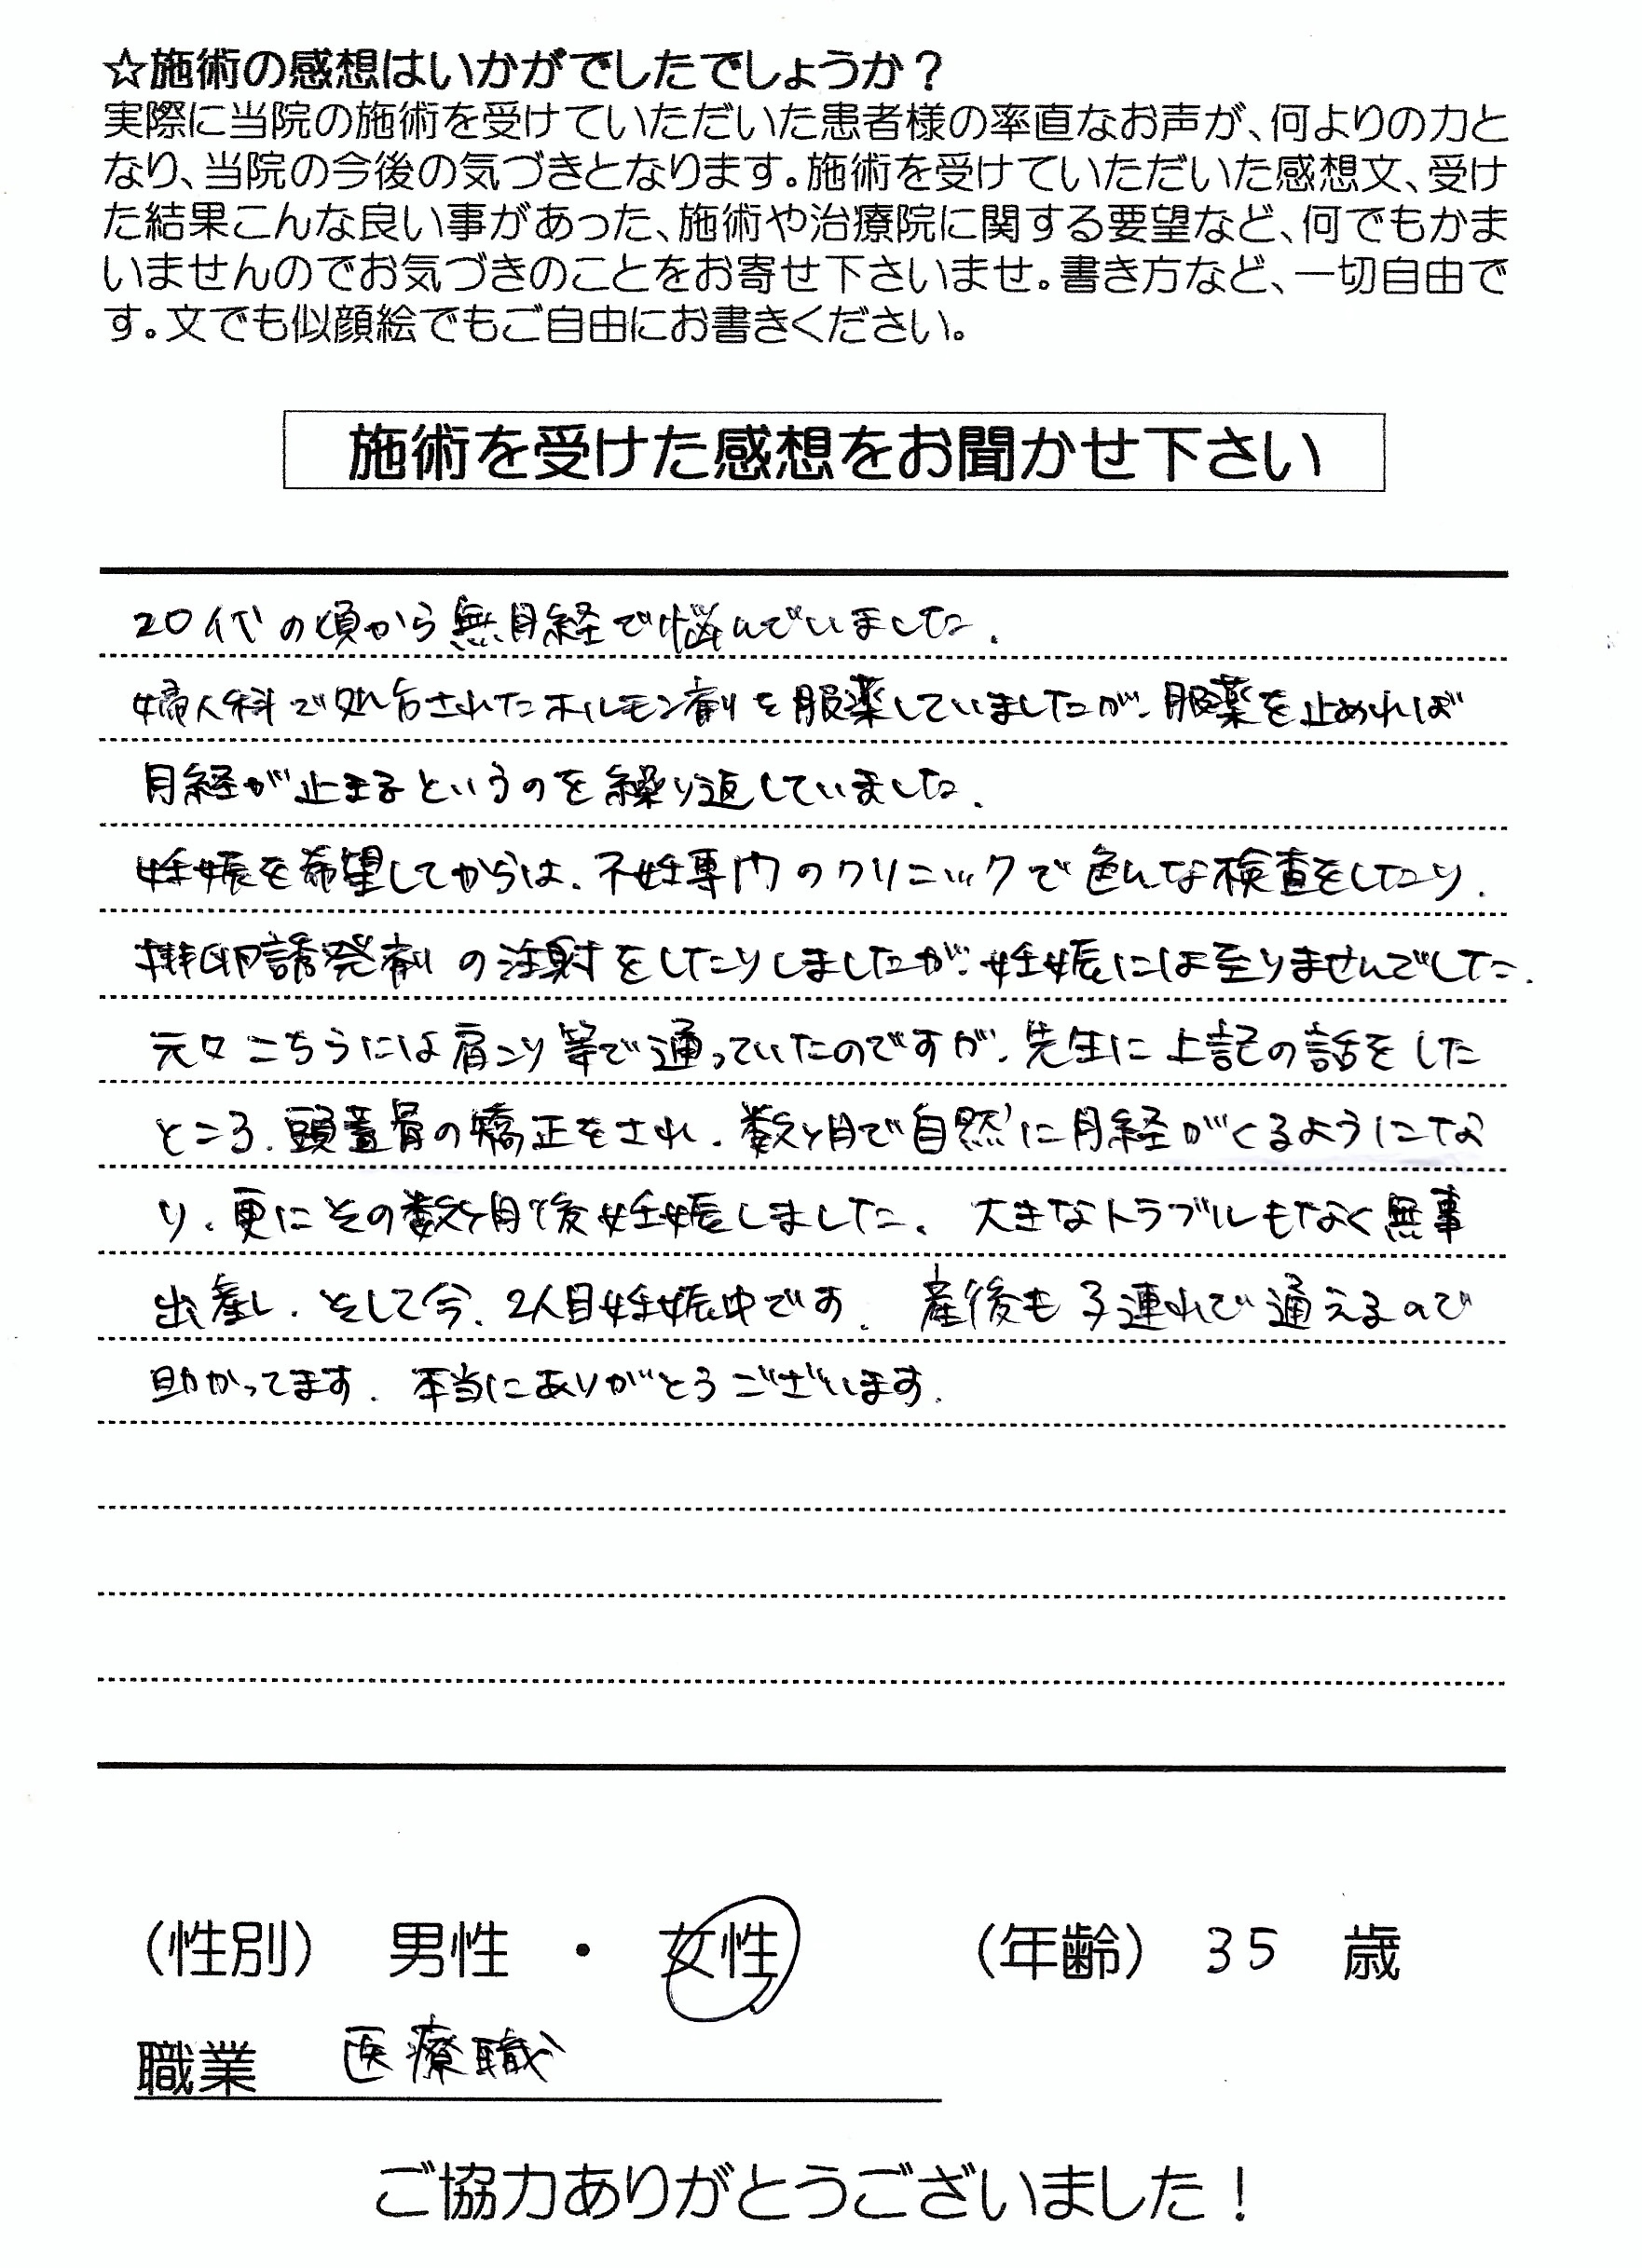 ☆施術の感想はいかがでしたでしょうか？
実際に当院の施術を受けていただいた患者様の率直なお声が、何よりの力と
なり、当院の今後の気づきとなります。施術を受けていただいた感想文、受け
た結果こんな良い事があった、施術や治療院に関する要望など、何でもかま
いませんのでお気づきのことをお寄せ下さいませ。書き方など、一切自由で
す。文でも似顔絵でもご自由にお書きください。
施術を受けた感想をお聞かせ下さい
20代の頃から無月経で悩んでいました。
婦人科で処方されたホルモン剤を服薬していましたが、服薬を止めれば
月経が止まるというのを繰り返していました。
妊娠を希望してからは、不妊専門のクリニックで色んな検査をしたり、
排卵誘発剤の注射をしたりしましたが、妊娠には至りませんでした。
元々こちらには肩こり等で通っていたのですが、先生に上記の話をした
ところ、頭蓋骨の矯正をされ、数ヶ月で自然に月経がくるようにな
り、更にその数ヶ月後妊娠しました。大きなトラブルもなく無事
出産し、そして今、2人目妊娠中です。産後も子連れで通えるので
助かってます。本当にありがとうございます。
（性別） 男性 ・ 女性 （年齢） 35 歳
職業 医療職
ご協力ありがとうございました！